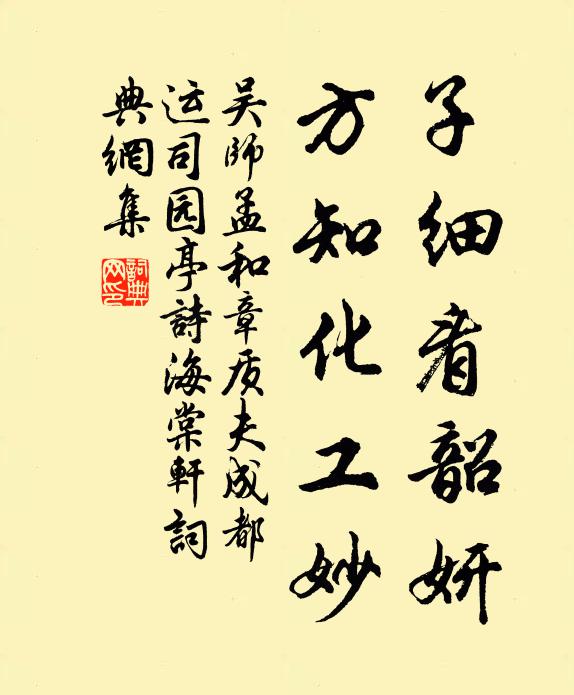 子细看韶妍
方知化工妙
吴師孟和章质夫成都
运司园亭詩海棠軒詞
典網集
詞典网印